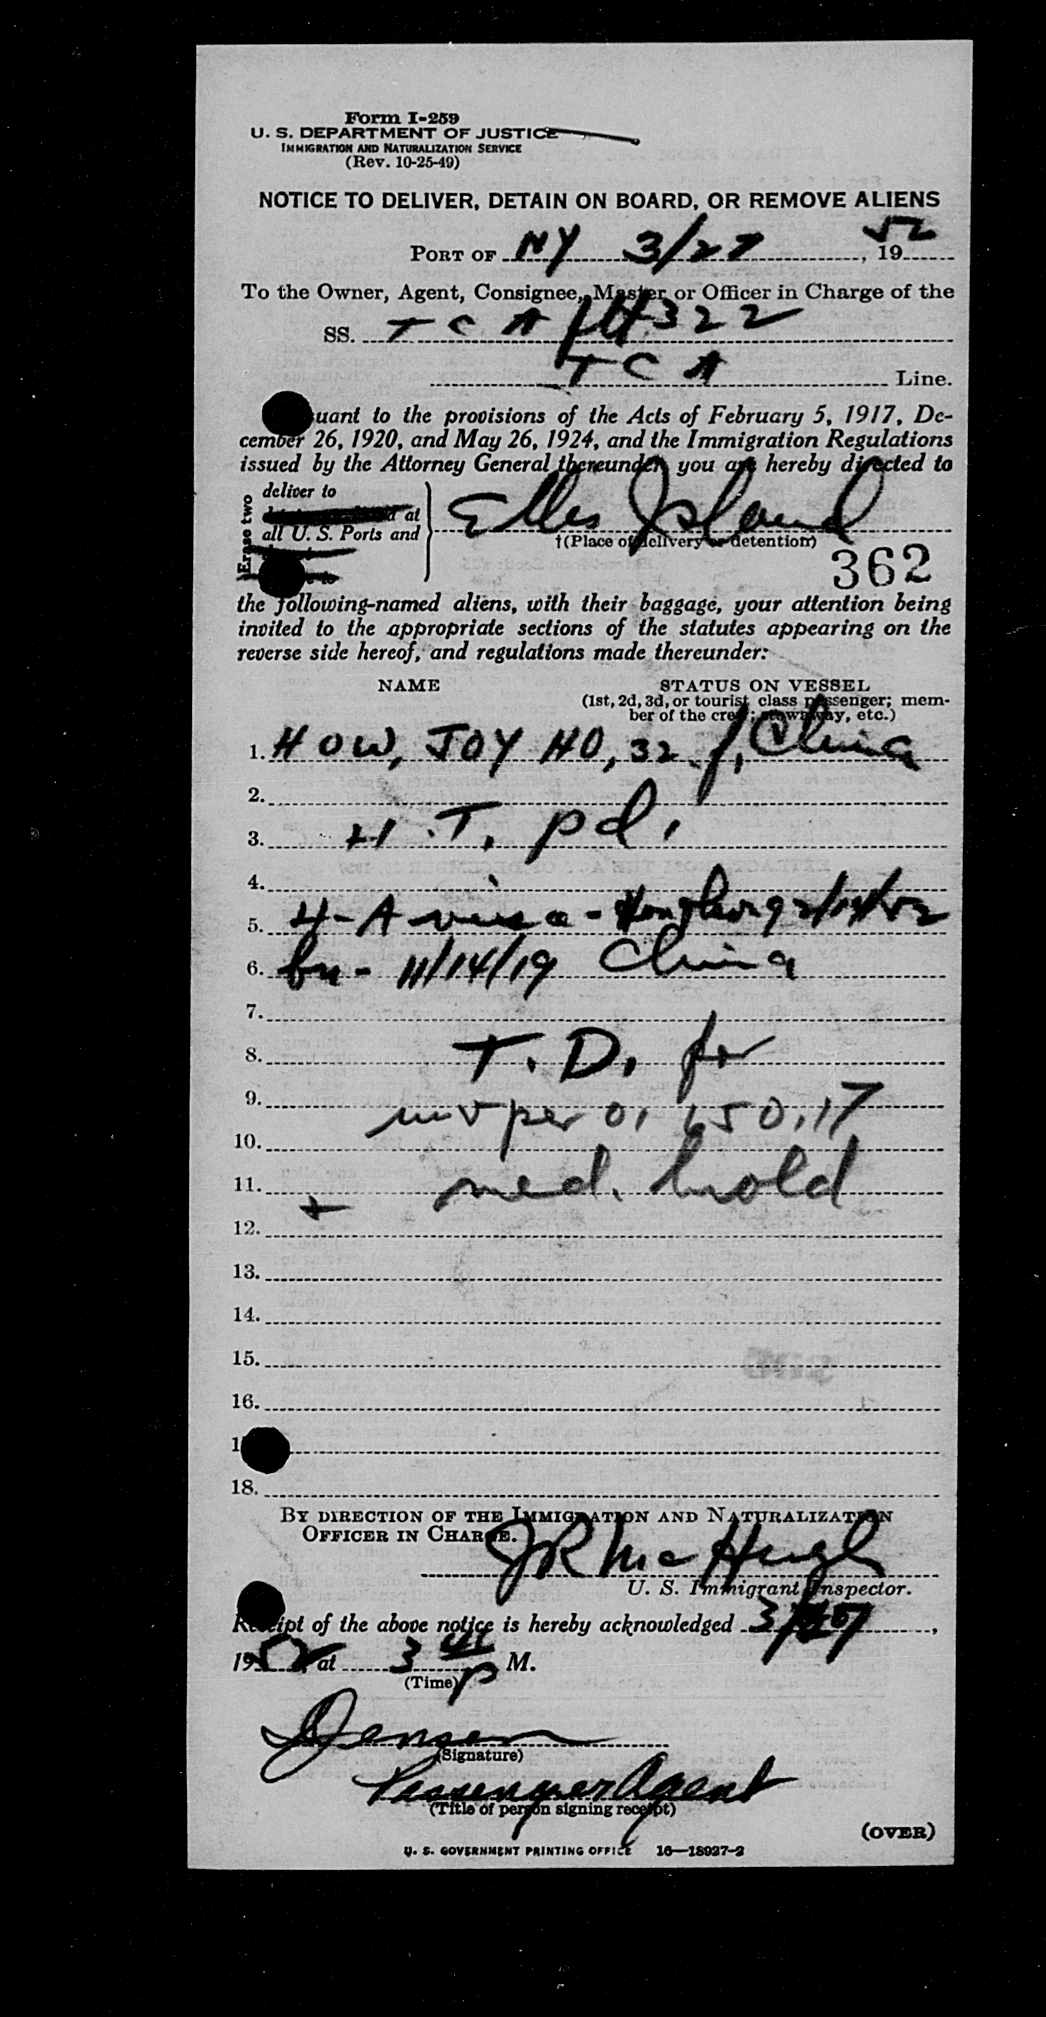 Form I-259
U. S. DEPARTMENT OF JUSTICE
IMMIGRATION AND NATURALIZATION SERVICE
(Rev. 10-25-49)
NOTICE TO DELIVER, DETAIN ON BOARD, OR REMOVE ALIENS
PORT OF NY 3/27, 1952
To the Owner, Agent, Consignee, Master or Officer in Charge of the
SS. TCA flt 322
TCA Line.
suant to the provisions of the Acts of February 5, 1917, De-
cember 26, 1920, and May 26, 1924, and the Immigration Regulations
issued by the Attorney General thereunder, you are hereby directed to
Erase two
deliver to
at
all U. S. Ports and
Ellis Island
†(Place of delivery or detention)
362
the following-named aliens, with their baggage, your attention being
invited to the appropriate sections of the statutes appearing on the
reverse side hereof, and regulations made thereunder:
NAME STATUS ON VESSEL
(1st, 2d, 3d, or tourist class passenger; mem-
ber of the crew; stowaway, etc.)
1. HOW, JOY HO, 32 f, China
2.
3. H.T. pd.
4.
5. 4-A visa - Hongkong 2/14/52
6. bn - 11/14/19 China
7.
8. T.D. for
9. per 01 150.17
10.
11. + med. hold
12.
13.
14.
15.
16.
1
18.
BY DIRECTION OF THE IMMIGRATION AND NATURALIZATION
OFFICER IN CHARGE.
JR McHugh
U. S. Immigrant Inspector.
Receipt of the above notice is hereby acknowledged 3/27,
1952 at 3 P M.
(Time)
Jensen
(Signature)
Passenger Agent
(Title of person signing receipt)
(OVER)
U. S. GOVERNMENT PRINTING OFFICE 16—18927-2